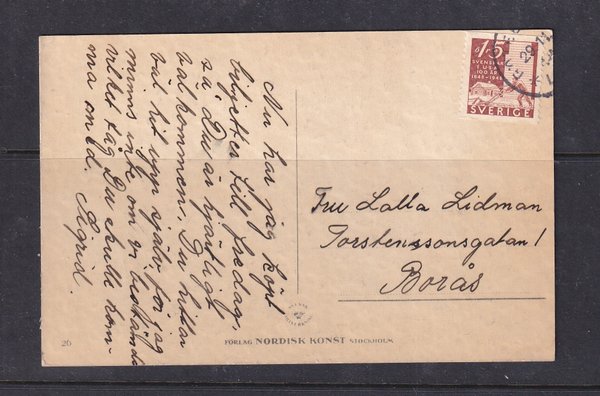 Nu har jag köpt
biljetter till fredag,
så Du är hjärtligt
välkommen. Du hittar
väl hit upp själv för jag
minns inte om vi bestämde
vilket tåg Du skulle kom-
ma med.
Sigrid.
15
SVENSKAR
I USA
100 ÅR
SVERIGE
29.11
Fru Lalla Lidman
Torstenssonsgatan 1
Borås
26
FÖRLAG NORDISK KONST STOCKHOLM